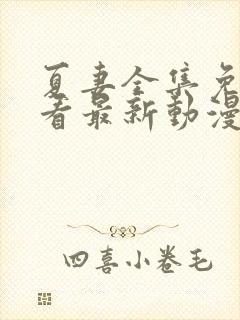 夏妻全集免
看最新動漫
四喜小卷毛